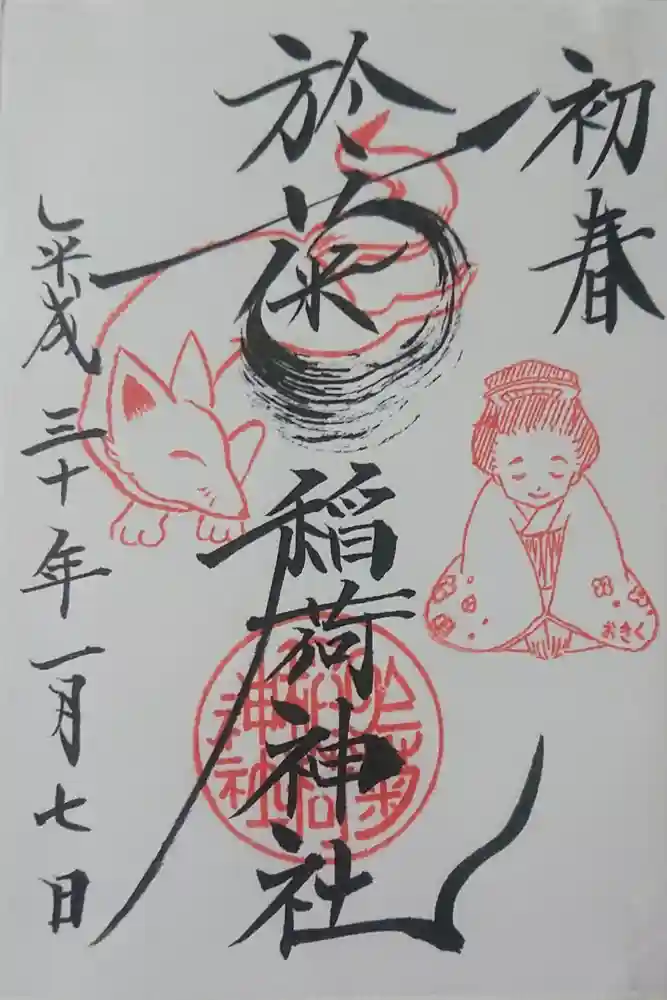 初春
於菊稲荷神社
平成三十年一月七日
おきく
於菊稲荷神社